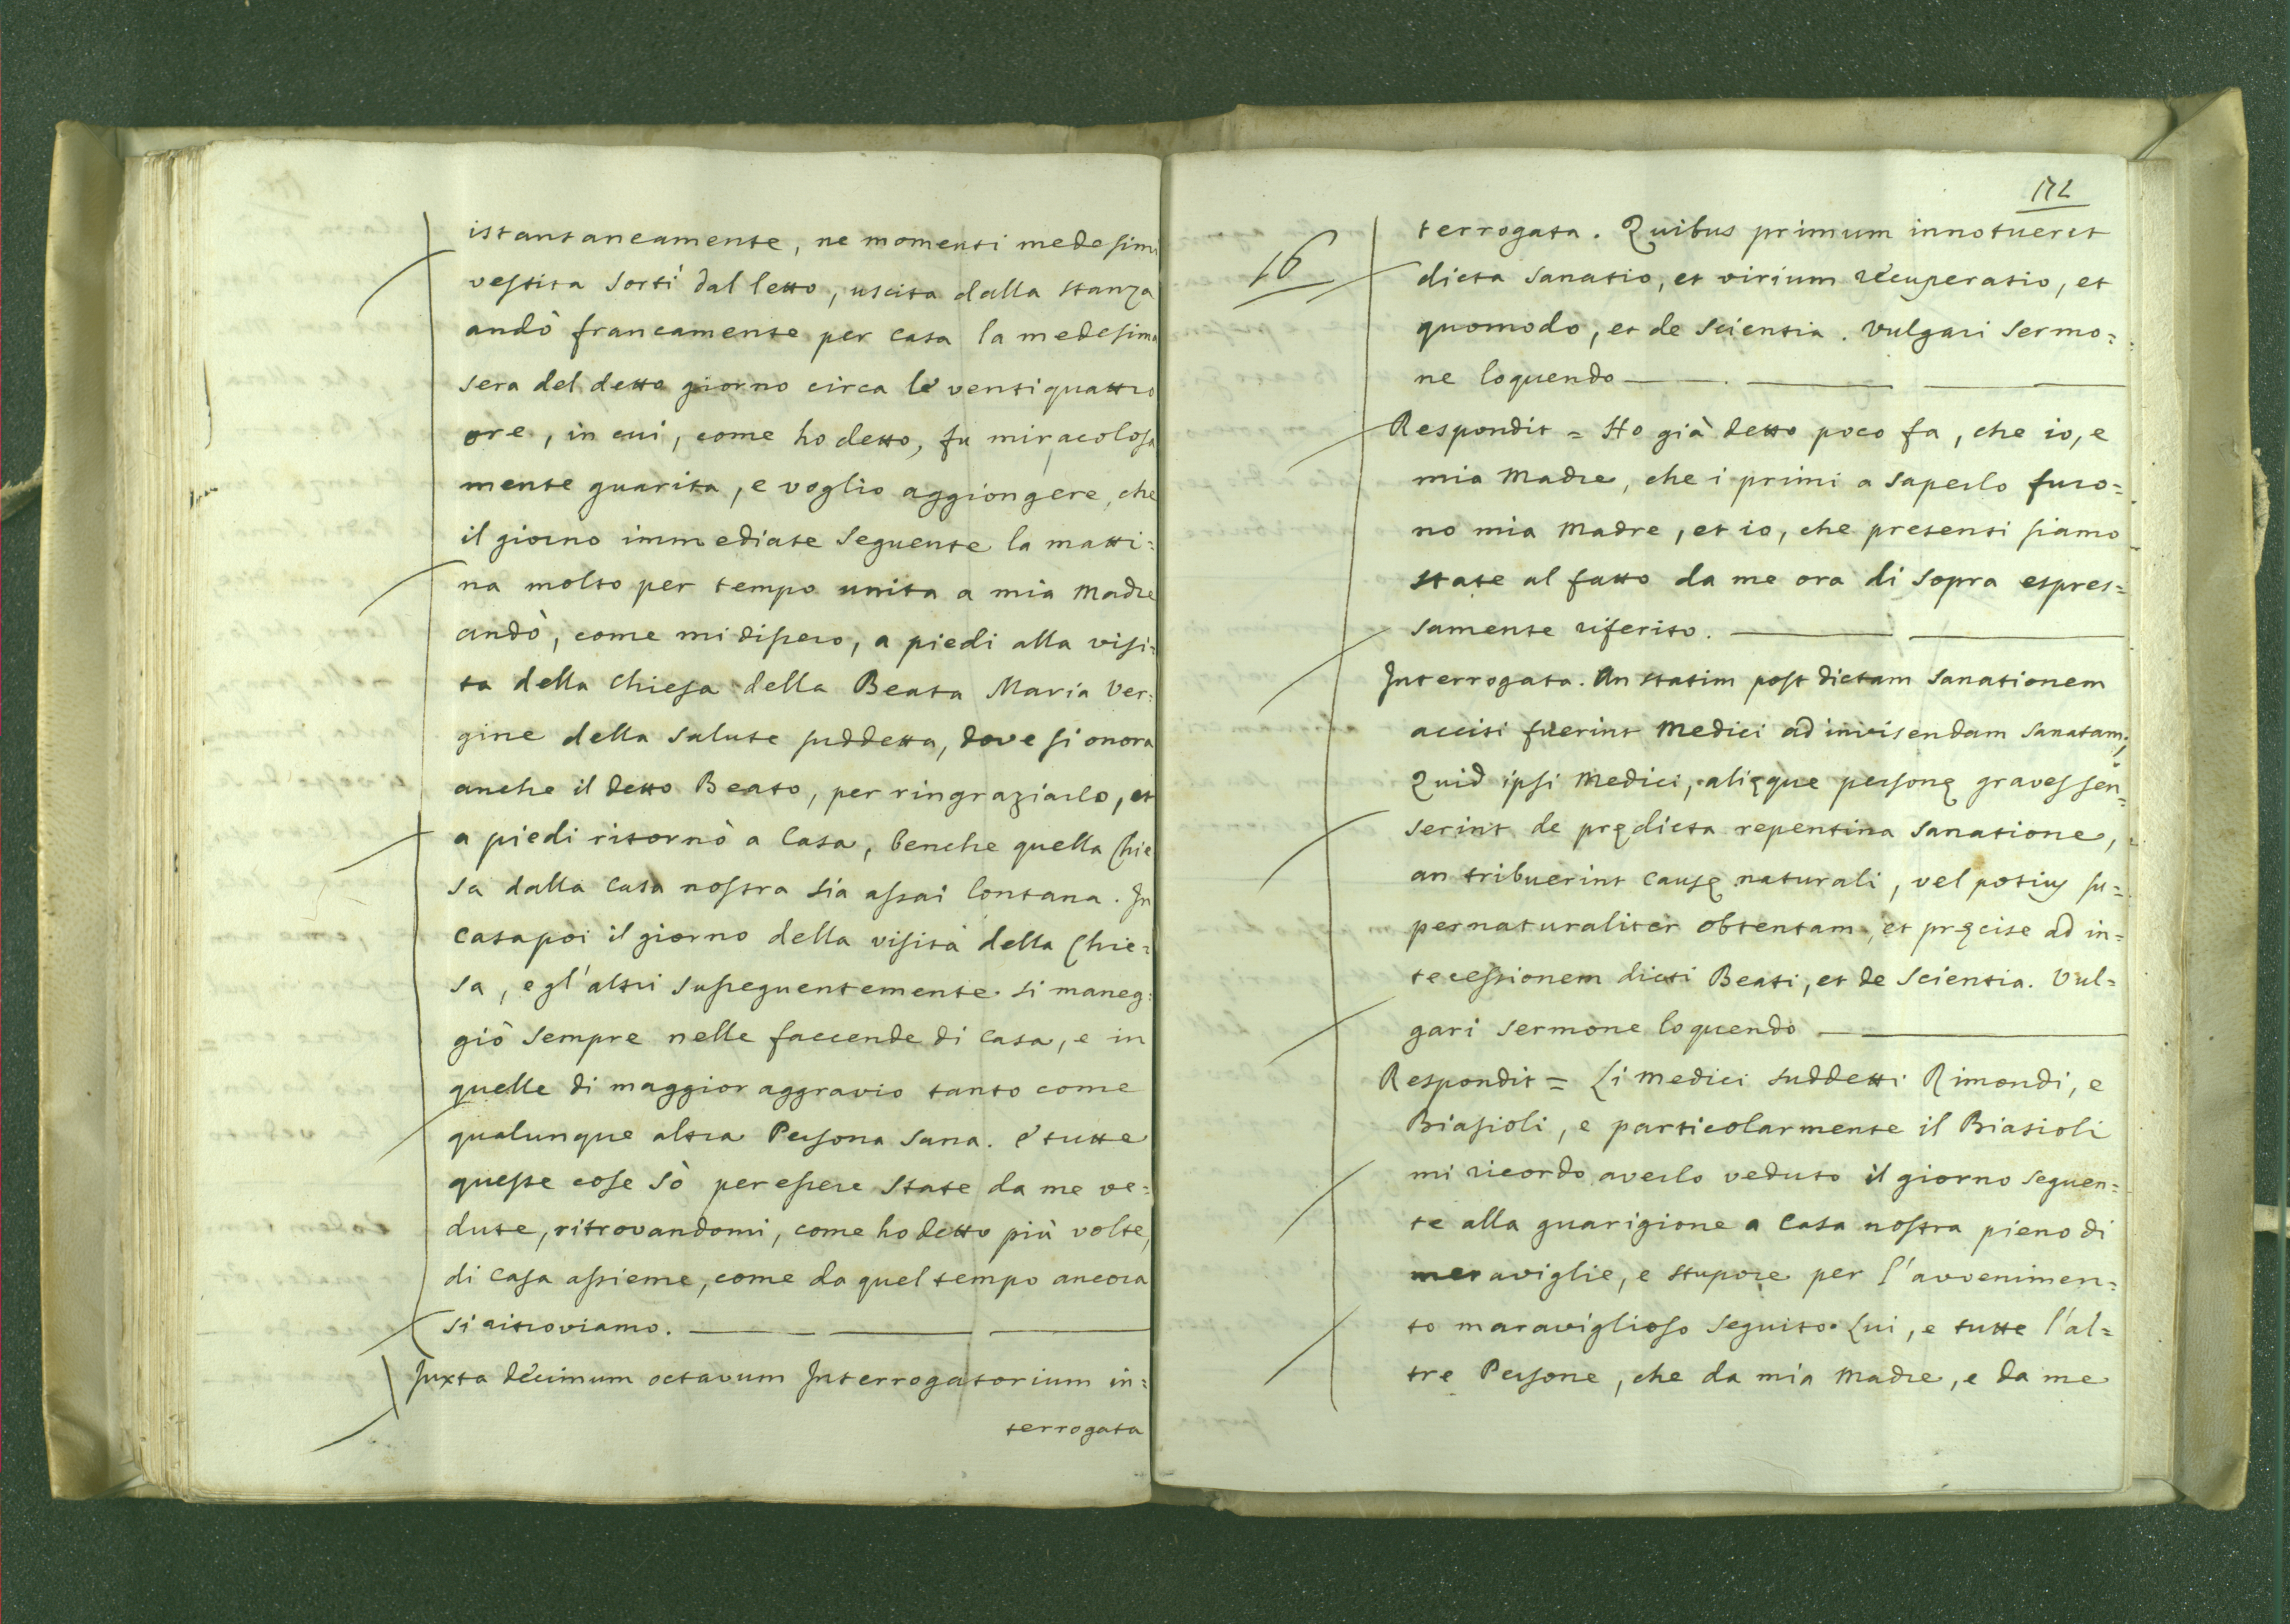 istantaneamente, ne momenti medesimi
vestita sortì dal letto, uscita dalla stanza
andò francamente per casa la medesima
sera del detto giorno circa le ventiquattro
ore, in cui, come ho detto, fu miracolosa
mente guarita, e voglio aggiongere, che
il giorno immediate seguente la matti=
na molto per tempo unita a mia Madre
andò, come mi dissero, a piedi alla visi=
ta della Chiesa della Beata Maria Ver=
gine della Salute suddetta, dove si onora
anche il detto Beato, per ringraziarlo, et
a piedi ritornò a Casa, benche quella Chie
sa dalla Casa nostra sia assai lontana. In
Casa poi il giorno della visita della Chie=
sa, e gl'altri susseguentemente si maneg=
giò sempre nelle faccende di Casa, e in
quelle di maggior aggravio tanto come
qualunque altra Persona sana. e tutte
queste cose sò per essere state da me ve=
dute, ritrovandomi, come ho detto più volte,
di Casa assieme, come da quel tempo ancora
si ritroviamo.
Juxta decimum octavum Interrogatorium in=
terrogata
172
16
terrogata. Quibus primum innotueret
dicta sanatio, et virium recuperatio, et
quomodo, et de scientia. Vulgari Sermo=
ne loquendo
Respondit = Ho già detto poco fa, che io, e
mia Madre, che i primi a saperlo furo=
no mia Madre, et io, che presenti siamo
state al fatto da me ora di sopra espres=
samente riferito.
Interrogata. An statim post dictam sanationem
acciti fuerint Medici ad invisendam sanatam;
Quid ipsi Medici, alięque personę graves sen=
serint de prędicta repentina sanatione,
an tribuerint causę naturali, vel potius su=
pernaturaliter obtentam, et pręcise ad in=
tecessionem dicti Beati, et de scientia. Vul=
gari sermone loquendo
Respondit = Li Medici suddetti Rimondi, e
Biasioli, e particolarmente il Biasioli
mi ricordo averlo veduto il giorno seguen=
te alla guarigione a Casa nostra pieno di
meraviglie, e stupore per l'avvenimen=
to maraviglioso seguito. Lui, e tutte l'al=
tre Persone, che da mia Madre, e da me